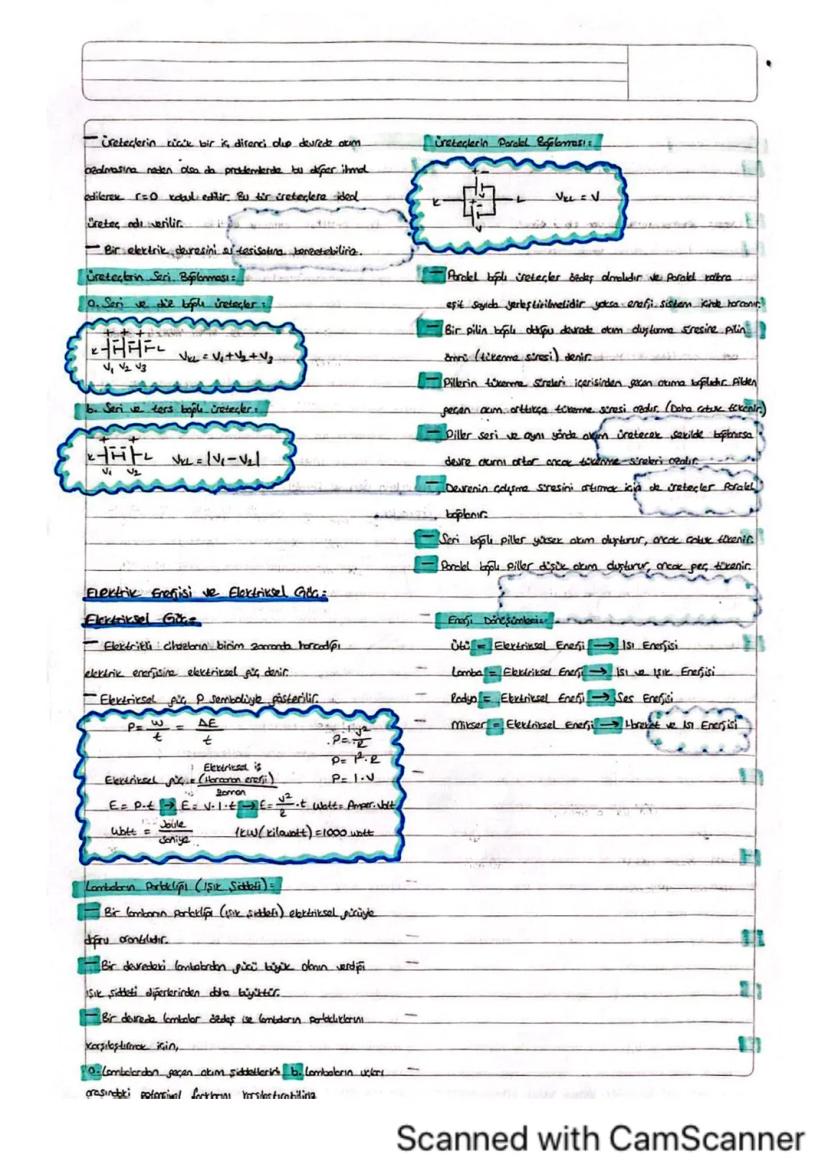 — Üreteçlerin küçük bir iç direnci olup devrede akım
azalmasına neden olsa da problemlerde bu değer ihmal
edilerek r=0 kabul edilir. Bu tür üreteçlere ideal
üreteç adı verilir.
— Bir elektrik devresini su tesisatına benzetebiliriz.
Üreteçlerin Seri Bağlanması:
a. Seri ve düz bağlı üreteçler:
+ + +
K L
V₁ V₂ V₃
VKL = V₁+V₂+V₃
b. Seri ve ters bağlı üreteçler:
+ +
K L
V₁ V₂
VKL = |V₁-V₂|
Elektrik Enerjisi ve Elektriksel Güç:
Elektriksel Güç:
— Elektrikli cihazların birim zamanda harcadığı
elektrik enerjisine elektriksel güç denir.
— Elektriksel güç P sembolüyle gösterilir.
P = W/t = ΔE/t
P = V²/R
P = I².R
P = I.V
Elektriksel güç = Elektriksel iş (Harcanan enerji) / Zaman
E = P.t → E = V.I.t → E = V²/R .t Watt = Amper.Volt
Watt = Joule/saniye 1kW(kilowatt) = 1000 watt
Lambaların Parlaklığı (Işık Şiddeti):
— Bir lambanın parlaklığı (ışık şiddeti) elektriksel gücüyle
doğru orantılıdır.
— Bir devredeki lambalardan gücü büyük olanın verdiği
ışık şiddeti diğerlerinden daha büyüktür.
— Bir devrede lambalar özdeş ise lambaların parlaklıklarını
karşılaştırmak için,
a. Lambalardan geçen akım şiddetlerini b. Lambaların uçları
arasındaki potansiyel farklarını karşılaştırabiliriz.
Üreteçlerin Paralel Bağlanması:
+ -
K L
+ -
V
VKL = V
— Paralel bağlı üreteçler özdeş olmalıdır ve paralel kollara
eşit sayıda yerleştirilmelidir yoksa enerji sistem içinde harcanır.
— Bir pilin bağlı olduğu devrede akım oluşturma süresine pilin
ömrü (tükenme süresi) denir.
— Pillerin tükenme süreleri içerisinden geçen akıma bağlıdır. Pilden
geçen akım arttıkça tükenme süresi azalır. (Daha çabuk tükenir)
— Piller seri ve aynı yönde akım üretecek şekilde bağlanırsa
devre akımı artar ancak tükenme süreleri azalır.
— Devrenin çalışma süresini artırmak için de üreteçler paralel
bağlanır.
— Seri bağlı piller yüksek akım oluşturur, ancak çabuk tükenir.
— Paralel bağlı piller düşük akım oluşturur, ancak geç tükenir.
Enerji Dönüşümleri:
Ütü = Elektriksel Enerji → Isı Enerjisi
Lamba = Elektriksel Enerji → Isı ve Işık Enerjisi
Radyo = Elektriksel Enerji → Ses Enerjisi
Mikser = Elektriksel Enerji → Hareket ve Isı Enerjisi
Scanned with CamScanner